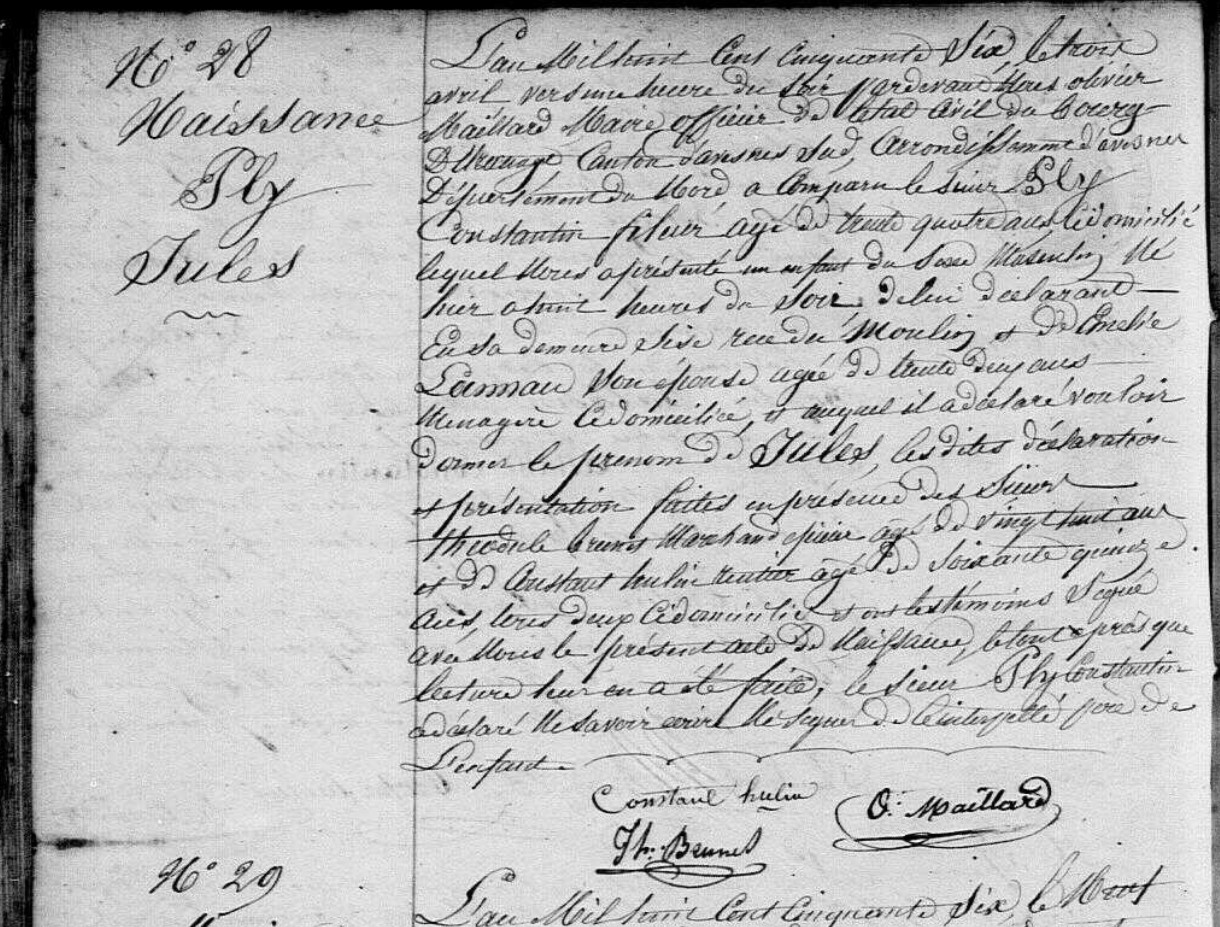 N° 28
Naissance
Ply
Jules
L'an Mil huit Cent Cinquante Six, le trois
avril vers une heure du Soir pardevant Nous olivier
Maillard Maire officier de l'état Civil du bourg
D'étrœungt Canton d'avesnes Sud, Arrondissement d'avesnes
Département du Nord a Comparu le sieur Ply
Constantin fileur agé de trente quatre ans Cidomicilié
lequel Nous a présenté un enfant du Sexe Masculin Né
hier a huit heures du Soir, de lui declarant
En sa demeure Sise rue du Moulin, et de Emelie
son épouse agée de trente deux ans
Menagère Cidomiciliée, et auquel il a declaré vouloir
donner le prenom de Jules, lesdites déclaration
et présentation faites en présence des Sieurs
théodule brunet Marchand epicier agé de vingt huit ans
et de Constant hulin rentier agé de soixante quinze
ans, tous deux Cidomicilié et ont les témoins Signé
avec Nous le présent acte de Naissance, le tout après que
lecture leur en a été faite, le sieur Ply Constantin
a déclaré Ne savoir écrire Ne signer de Ce interpellé père de
L'enfant.
Constant hulin
O. Maillard
Th. Brunet
N° 29
L'an Mil huit Cent Cinquante Six, le Neuf